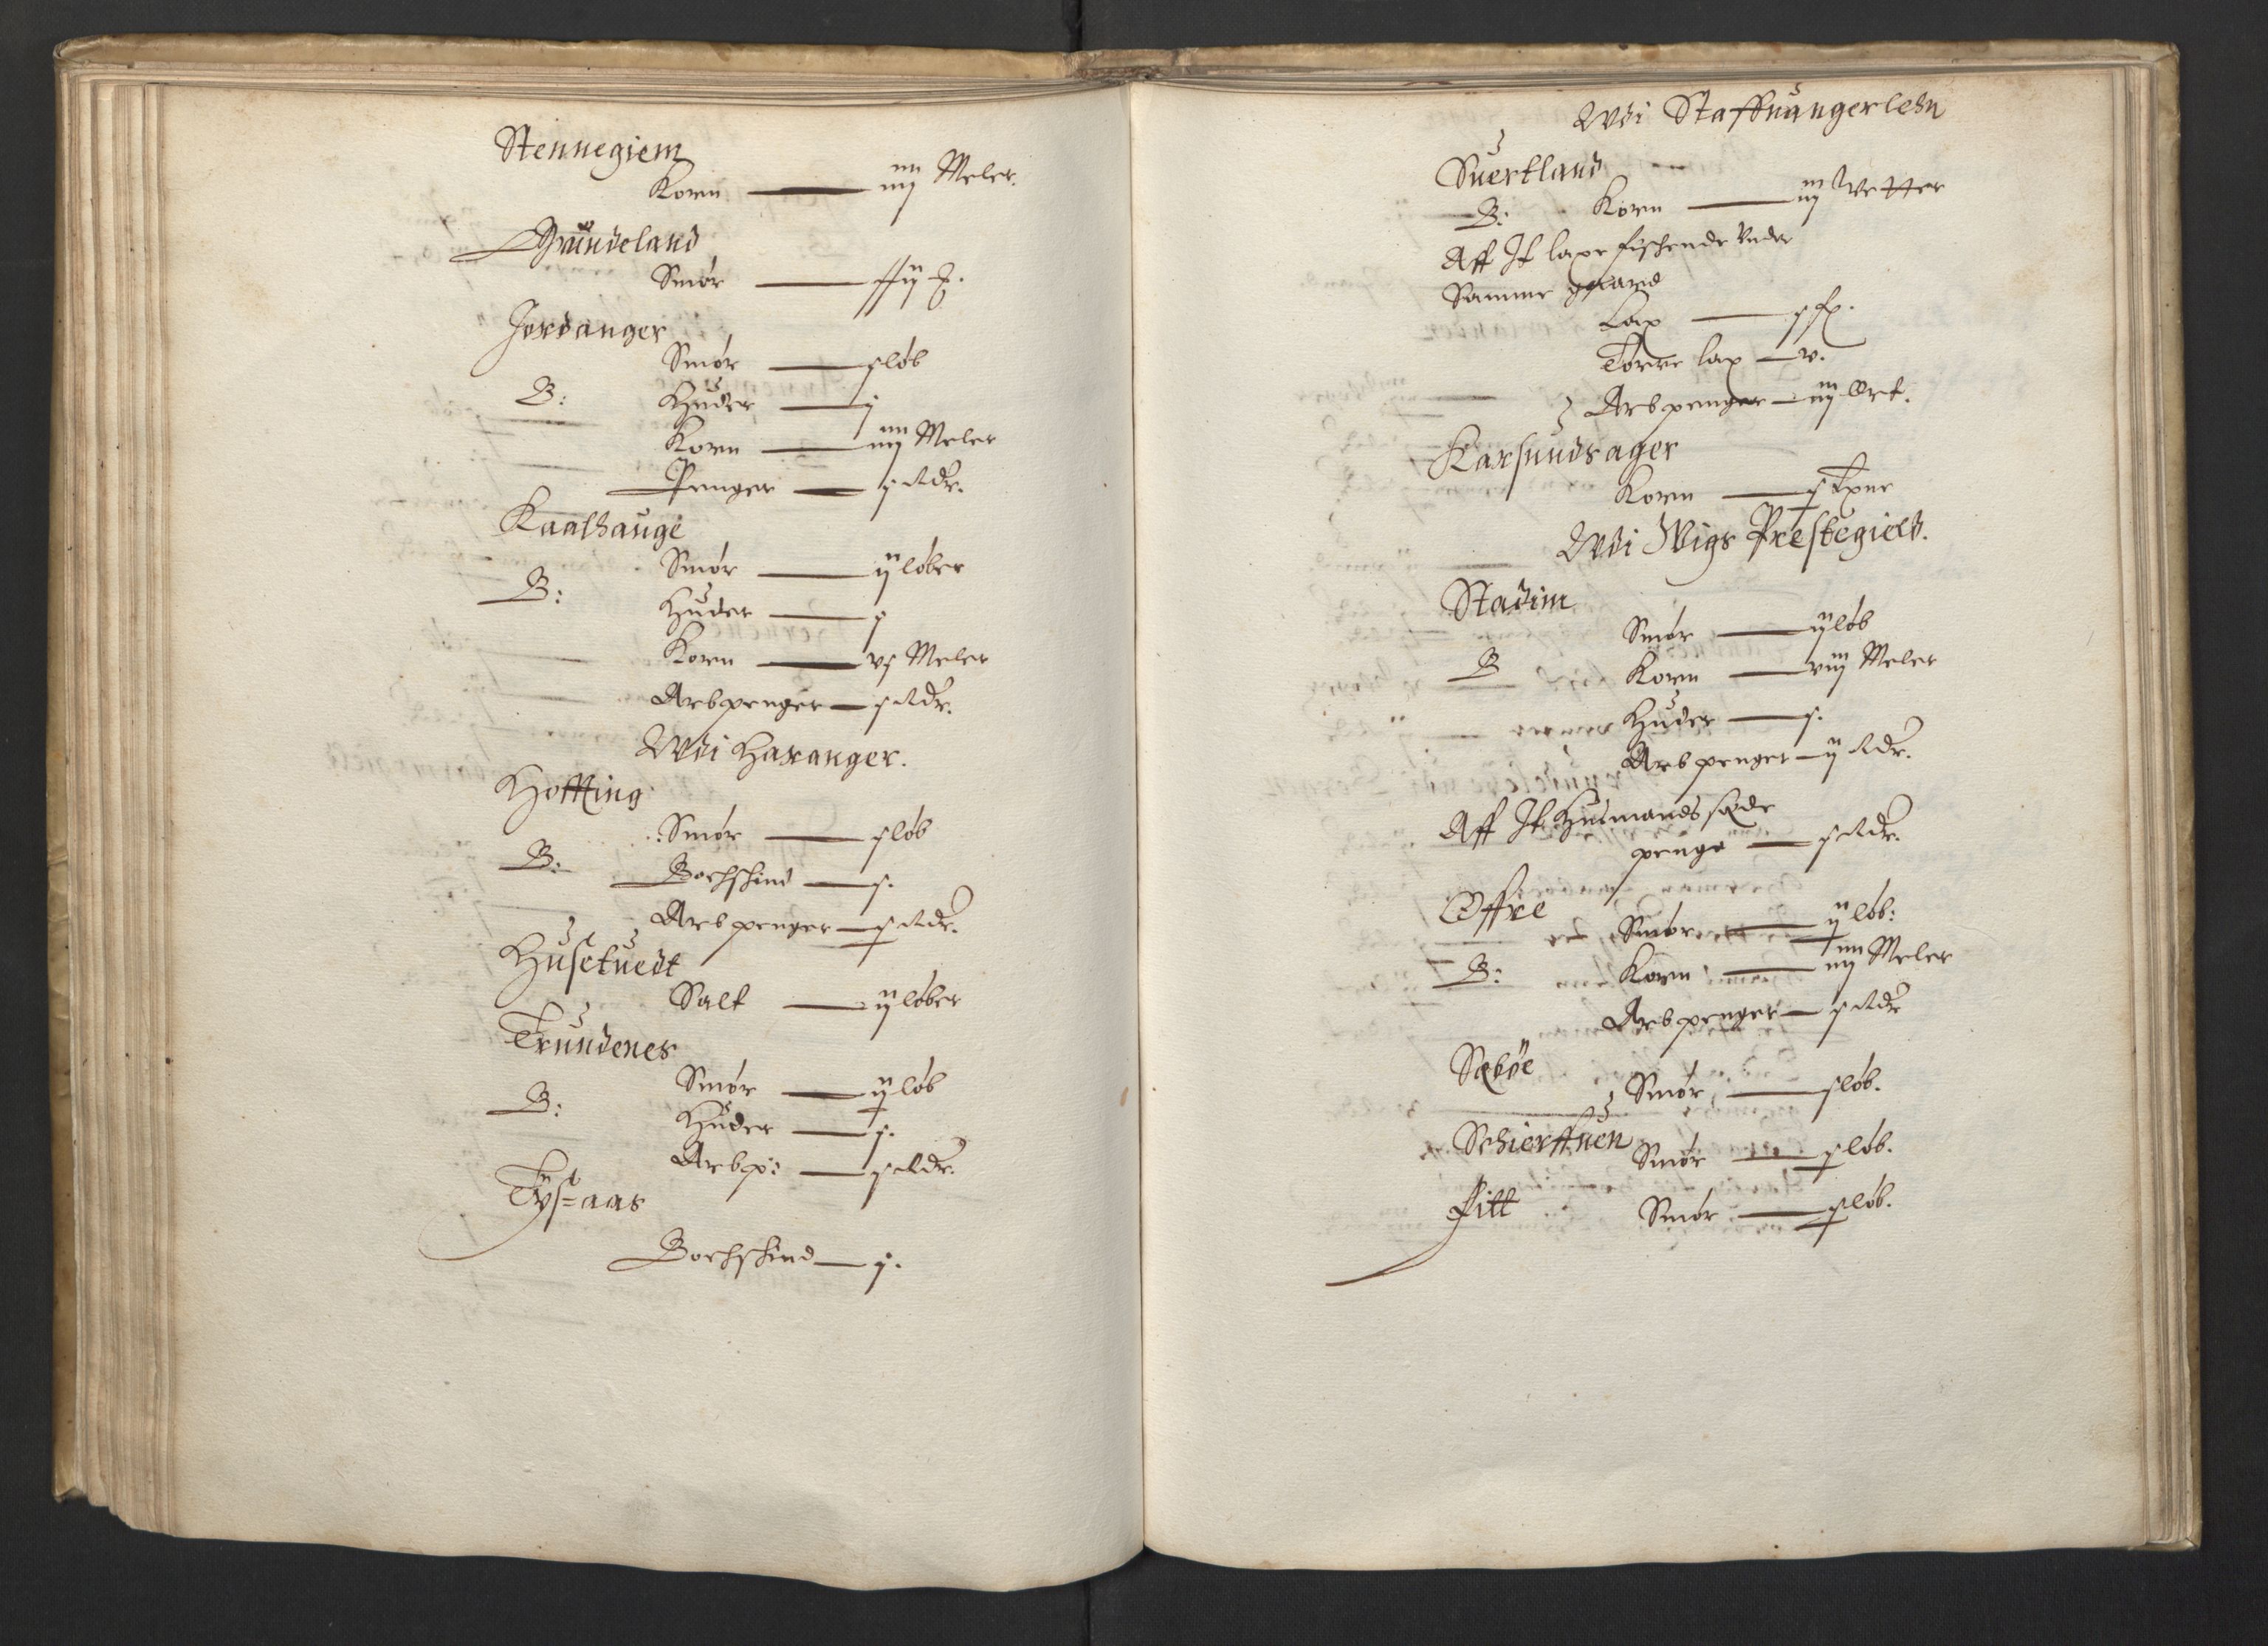 Stennegiem
Korn — iiij Meler.
Grundeland
Smør —
Jordanger
Smør — j løb
B: Huder — j
Korn — iiij Meler
Penger — j Rdr.
Kaalhauge
Smør — ij løber
B:
Huder — j
Korn — vj Meler
Arb penger — j Rdr.
Wdi Haranger.
Hoffting
Smør — j løb
B: Bochskind — j.
Arb penger — Rdr.
Husetuedt
Salt — ij løber
Trundenes
Smør — løb
B: Huder — j.
Arb p: — j Rdr.
Tys=aas
Bochskind — j.
Wdi Staffuangerlehn
Suertland
B: Korn — iij Wetter
Aff It laxe fischende Under
Samme gaard
Lax —
Tørre lax — v.
Arb penger — iij Ort.
Karsundsager
Korn — Tøne
Wdi Wigs Prestegield.
Stadim
Smør — ij løb
B Korn — viij Meler
Huder — j.
Arb penger — ij Rdr.
Aff It Husmands sæde
penge — j Rdr.
Offre
Smør — løb:
B: Korn — iiij Meler
Arb penger — j Rdr
Sæbøe
Smør — j løb.
Schierffuen
Smør — løb.
Fitt Smør — løb.